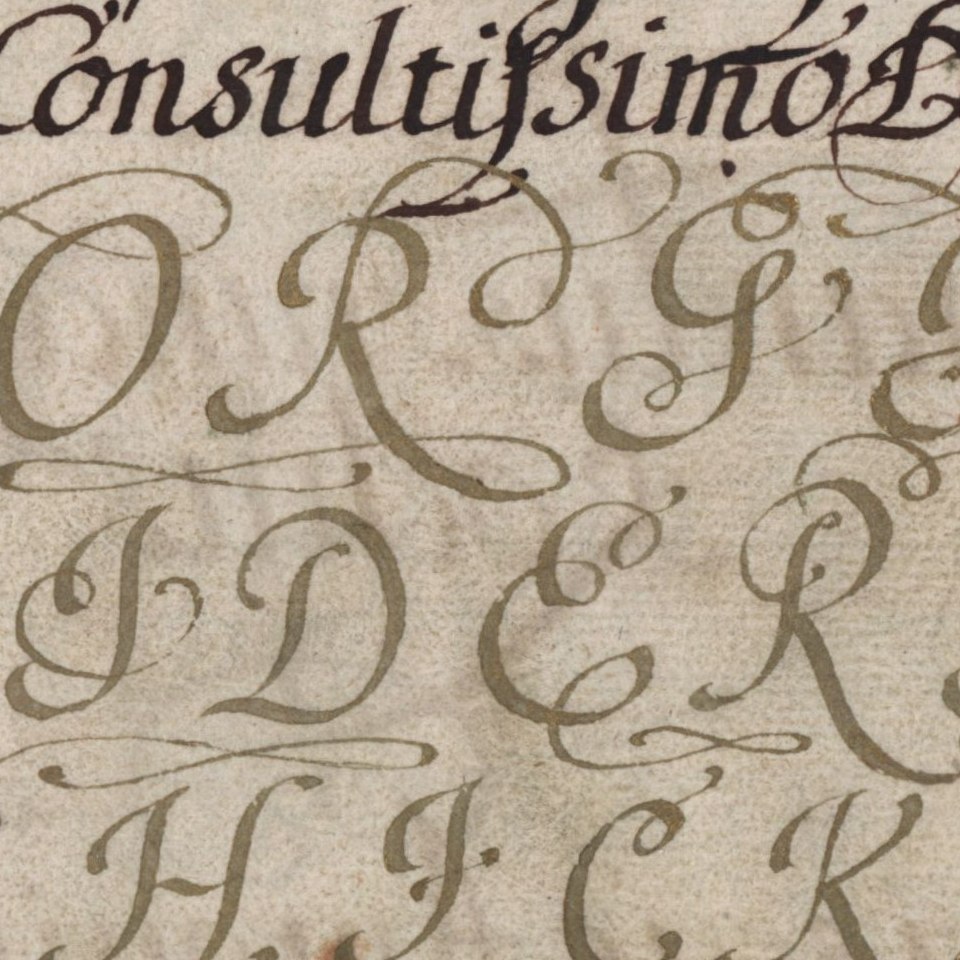 Consultissimo
ORG
IDER
HICK